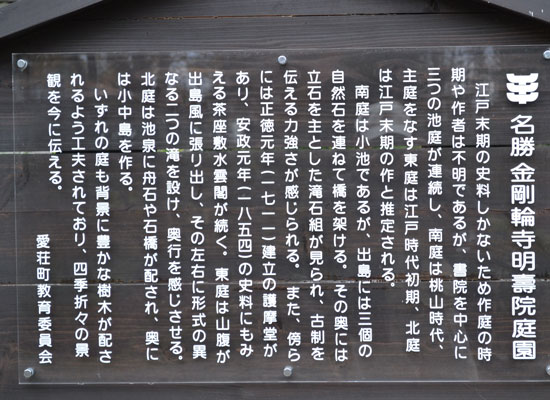 名勝 金剛輪寺明壽院庭園
江戸末期の史料しかないため作庭の時
期や作者は不明であるが、書院を中心に
三つの池庭が連続し、南庭は桃山時代、
主庭をなす東庭は江戸時代初期、北庭
は江戸末期の作と推定される。
南庭は小池であるが、出島には三個の
自然石を連ねて橋を架ける。その奥には
立石を主とした滝石組が見られ、古制を
伝える力強さが感じられる。また、傍ら
には正徳元年(一七一一)建立の護摩堂が
あり、安政元年(一八五四)の史料にもみ
える茶座敷水雲閣が続く。東庭は山腹が
出島風に張り出し、その左右に形式の異
なる二つの滝を設け、奥行を感じさせる。
北庭は池泉に舟石や石橋が配され、奥に
は小中島を作る。
いずれの庭も背景に豊かな樹木が配さ
れるよう工夫されており、四季折々の景
観を今に伝える。
愛荘町教育委員会